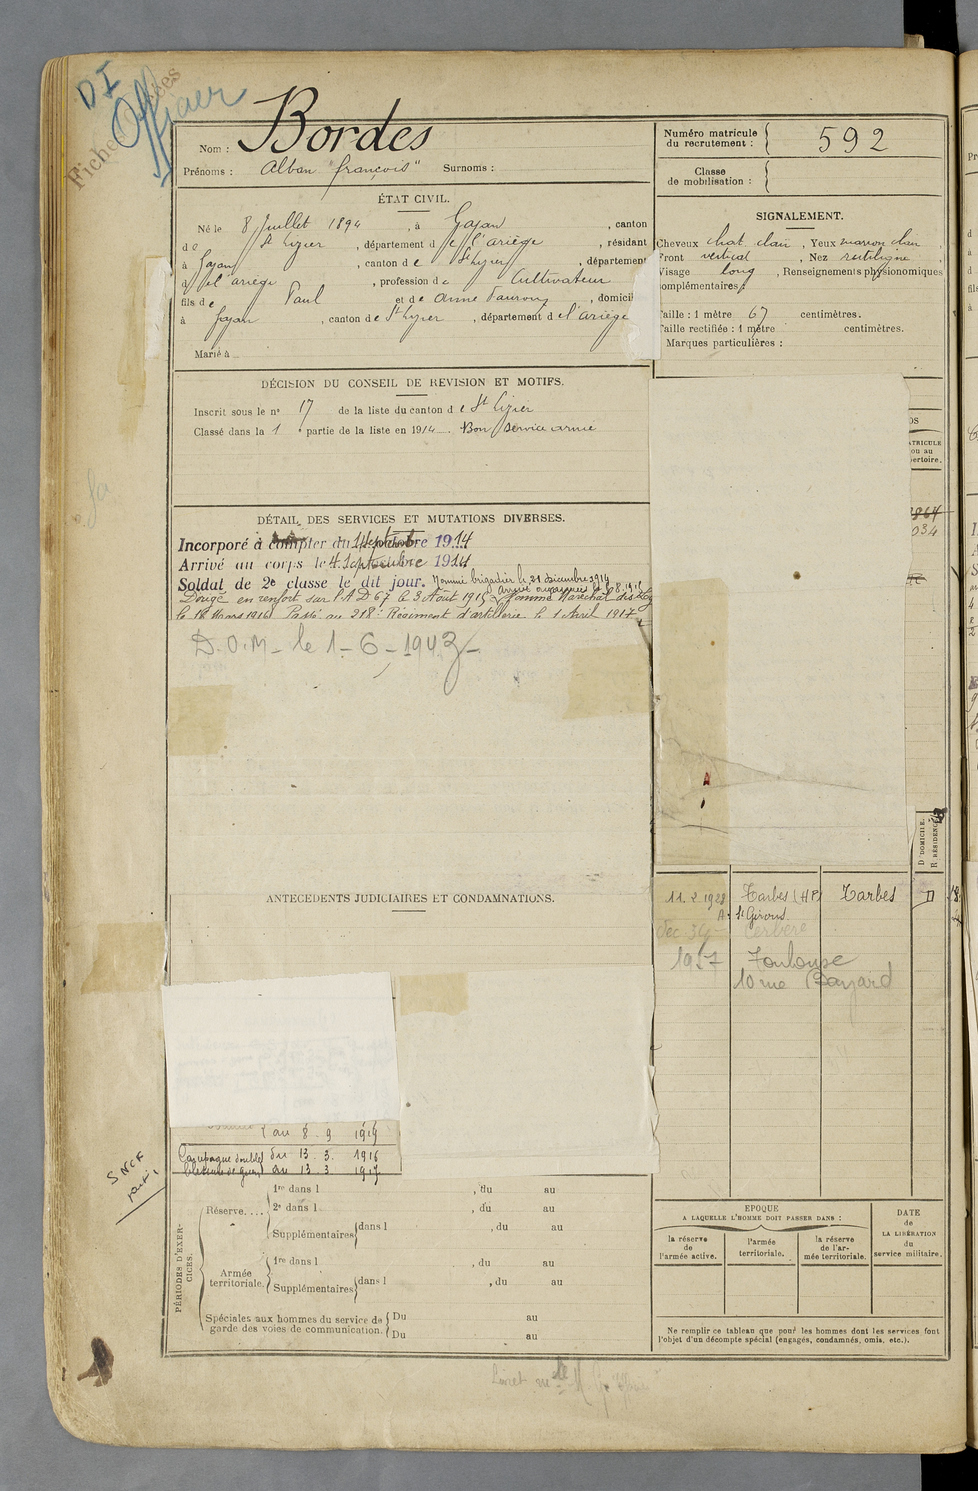 D I
Nom : Bordes
Prénoms : Alban "françois" Surnoms :
ÉTAT CIVIL.
Né le 8 Juillet 1894, à Gajan, canton
de St Lizier, département de l'ariège, résidant
à Gajan, canton de St Lizier, département
d el'ariège, profession de Cultivateur
fils de Paul et de Anne, domicil
à Gajan, canton de St Lizier, département de l'ariège
Marié à
DÉCISION DU CONSEIL DE REVISION ET MOTIFS.
Inscrit sous le no 17 de la liste du canton de St Lizier
Classé dans la 1 e partie de la liste en 1914 Bon service armé
DÉTAIL DES SERVICES ET MUTATIONS DIVERSES.
Incorporé à compter du 1 Septembre 1914
Arrivé au corps le 4 Septembre 1914
Soldat de 2e classe le dit jour. Nommé brigadier le 21 décembre 1914
en renfort sur l'A D 67 le 3 Août 1915 Nommé Maréchal des
le 16 Mars 1916 Passé au 218e Régiment d'artillerie le 1 Avril 1917
D.O.M - le 1-6-1943
ANTECEDENTS JUDICIAIRES ET CONDAMNATIONS.
au 8 . 9 1919
Campagne double du 13 . 3. 1916
au 13 3 1917
SNCF
PÉRIODES D'EXERCICES.
Réserve.... 1re dans l , du au
2e dans l , du au
Supplémentaires dans l , du au
Armée territoriale. 1re dans l , du au
Supplémentaires dans l , du au
Spéciales aux hommes du service de garde des voies de communication. Du au
Du au
Numéro matricule du recrutement : 592
Classe de mobilisation :
SIGNALEMENT.
Cheveux chat clair, Yeux marron clair,
Front vertical, Nez rectiligne,
Visage long, Renseignements physionomiques
omplémentaires :
Taille : 1 mètre 67 centimètres.
Taille rectifiée : 1 mètre centimètres.
Marques particulières :
ATRICULE
ou au
ertoire.
D DOMICILE.
R RÉSIDENCE
11. 2. 1922 Tarbes (HP) Tarbes D
St Girons
Dec. 34 Cerbère
1957 Toulouse
10 rue Bayard
EPOQUE
A LAQUELLE L'HOMME DOIT PASSER DANS :
la réserve de l'armée active.
l'armée territoriale.
la réserve de l'armée territoriale.
DATE
de
LA LIBÉRATION
du
service militaire.
Ne remplir ce tableau que pour les hommes dont les services font
l'objet d'un décompte spécial (engagés, condamnés, omis, etc.).